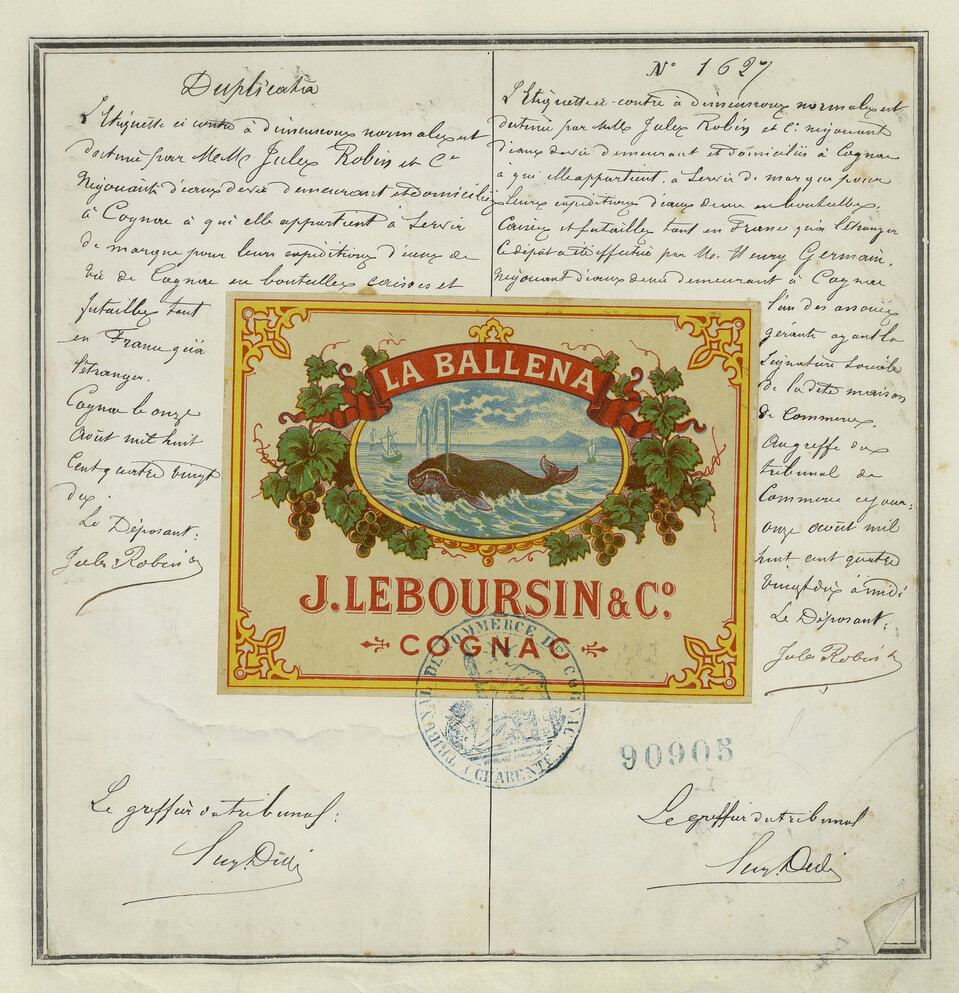 Duplicata
L'Etiquette ci contre à dimensions normales est
destinée par MM. Jules Robin et Cie
Négociants d'eaux de vie demeurant et domiciliés
à Cognac à qui elle appartient à servir
de marque pour leurs expéditions d'eaux de
vie de Cognac en bouteilles caisses et
futailles tant
en France qu'à
l'étranger.
Cognac le onze
Août mil huit
cent quatre vingt
dix.
Le Déposant:
Jules Robin &
N° 1627
L'Etiquette ci-contre à dimensions normales est
destinée par MM. Jules Robin et Cie négociants
d'eaux de vie demeurant et domiciliés à Cognac
à qui elle appartient, à servir de marque pour
leurs expéditions d'eaux de vie en bouteilles,
Caisses et futailles tant en France qu'à l'étranger
Le dépôt a été effectué par M. Henry Germain,
Négociant d'eaux de vie demeurant à Cognac
l'un des associés
gérants ayant la
signature sociale
de la dite maison
de commerce.
Au greffe du
tribunal de
Commerce ce jour:
onze août mil
huit cent quatre
vingt dix à midi
Le Déposant:
Jules Robin &
LA BALLENA
J. LEBOURSIN & Cº.
COGNAC
TRIBUNAL DE COMMERCE DE COGNAC
(CHARENTE)
90905
Le greffier du tribunal:
Le greffier du tribunal